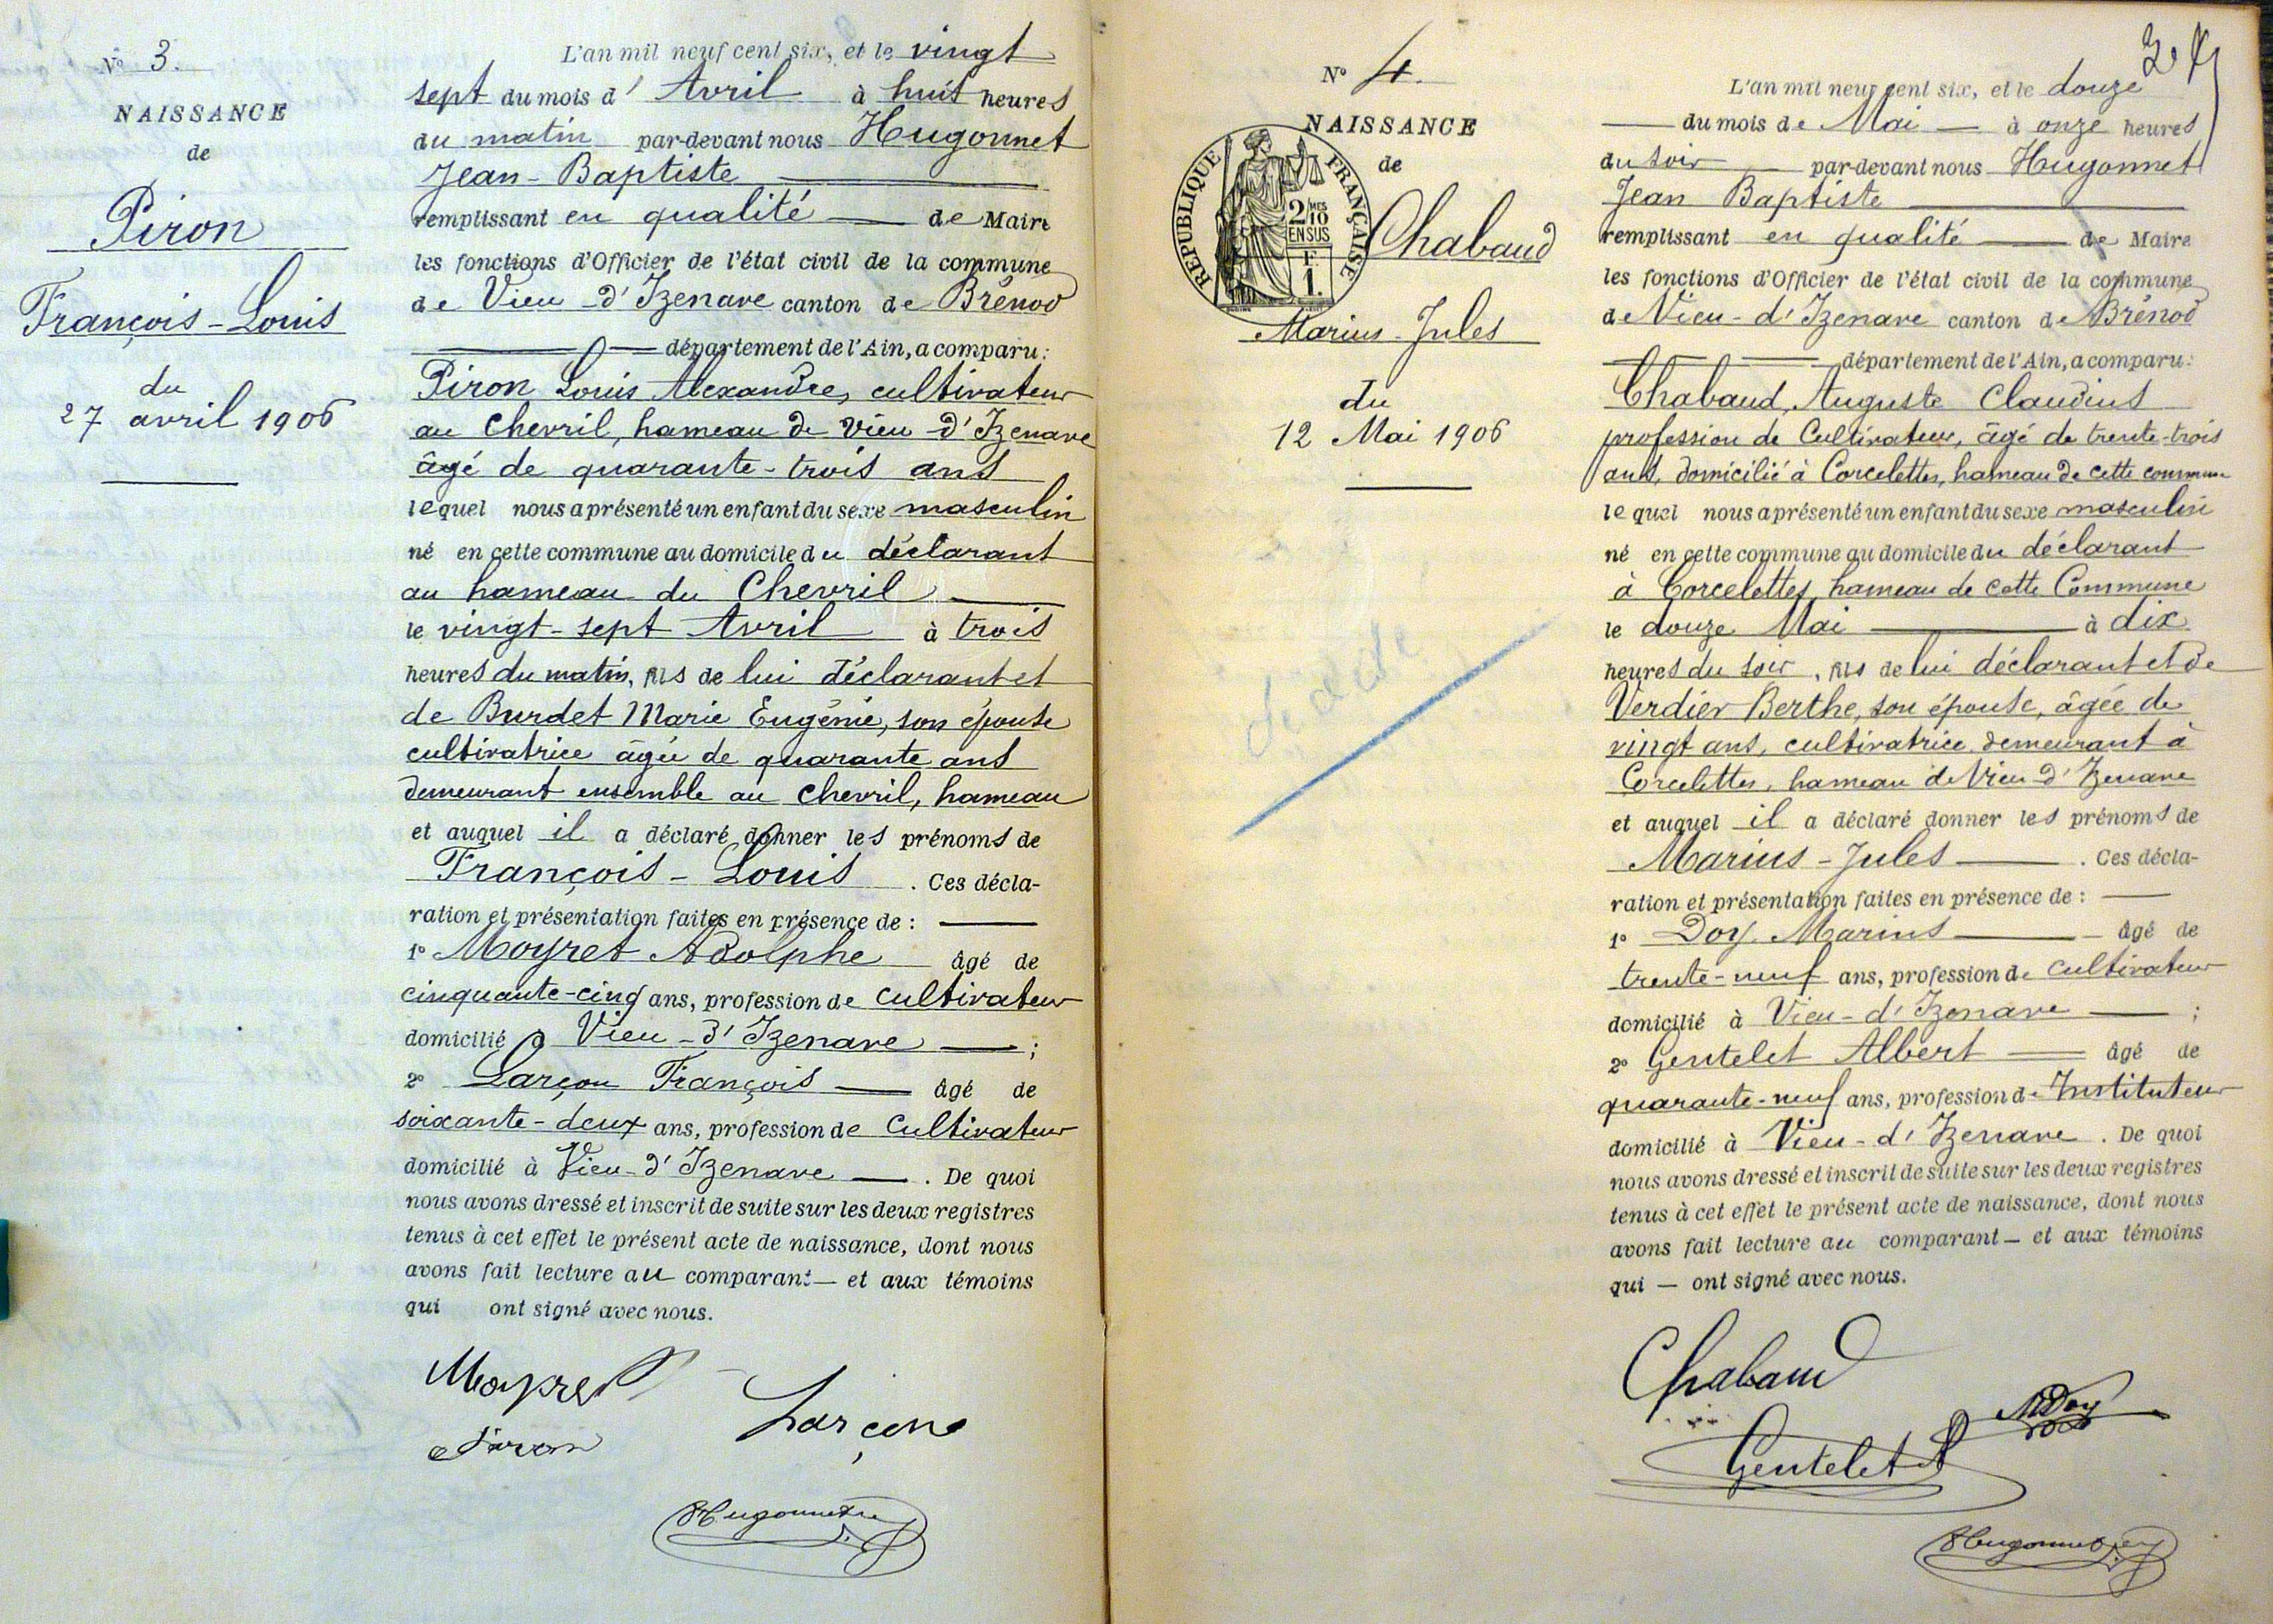 N° 3.
NAISSANCE
de
Piron
François-Louis
du
27 avril 1906
L'an mil neuf cent six, et le vingt
sept du mois d' Avril à huit heures
du matin par-devant nous Hugonnet
Jean-Baptiste
remplissant en qualité de Maire
les fonctions d'Officier de l'état civil de la commune
de Vieu-d'Izenave canton de Brénod
département de l'Ain, a comparu:
Piron Louis Alexandre, cultivateur
au Chevril, hameau de Vieu-d'Izenave
âgé de quarante-trois ans
lequel nous a présenté un enfant du sexe masculin
né en cette commune au domicile du déclarant
au hameau du Chevril
le vingt-sept Avril à trois
heures du matin, fils de lui déclarant et
de Burdet Marie Eugénie, son épouse
cultivatrice âgée de quarante ans
demeurant ensemble au Chevril, hameau
et auquel il a déclaré donner les prénoms de
François-Louis. Ces décla-
ration et présentation faites en présence de :
1° Moyret Adolphe âgé de
cinquante-cinq ans, profession de cultivateur
domicilié à Vieu-d'Izenave ;
2° Larçon François âgé de
soixante-deux ans, profession de cultivateur
domicilié à Vieu-d'Izenave. De quoi
nous avons dressé et inscrit de suite sur les deux registres
tenus à cet effet le présent acte de naissance, dont nous
avons fait lecture au comparant et aux témoins
qui ont signé avec nous.
Moyret
Larçon
Piron
Hugonnet
N° 4.
NAISSANCE
de
REPUBLIQUE FRANÇAISE
2 MES
10
EN SUS
F.
1.
Chabaud
Marius-Jules
du
12 Mai 1906
L'an mil neuf cent six, et le douze
du mois de Mai à onze heures
du soir par-devant nous Hugonnet
Jean Baptiste
remplissant en qualité de Maire
les fonctions d'Officier de l'état civil de la commune
de Vieu-d'Izenave canton de Brénod
département de l'Ain, a comparu:
Chabaud, Auguste Claudius
profession de Cultivateur, âgé de trente-trois
ans, domicilié à Corcelettes, hameau de cette commune
lequel nous a présenté un enfant du sexe masculin
né en cette commune au domicile du déclarant
à Corcelettes, hameau de cette Commune
le douze Mai à dix
heures du soir, fils de lui déclarant et de
Verdier Berthe, son épouse, âgée de
vingt ans, cultivatrice demeurant à
Corcelettes, hameau de Vieu d'Izenave
et auquel il a déclaré donner les prénoms de
Marius-Jules. Ces décla-
ration et présentation faites en présence de :
1° Doy Marius âgé de
trente-neuf ans, profession de cultivateur
domicilié à Vieu-d'Izenave ;
2° Gentelet Albert âgé de
quarante-neuf ans, profession d'Instituteur
domicilié à Vieu-d'Izenave. De quoi
nous avons dressé et inscrit de suite sur les deux registres
tenus à cet effet le présent acte de naissance, dont nous
avons fait lecture au comparant et aux témoins
qui ont signé avec nous.
Chabaud
MDoy
Gentelet A
Hugonnet